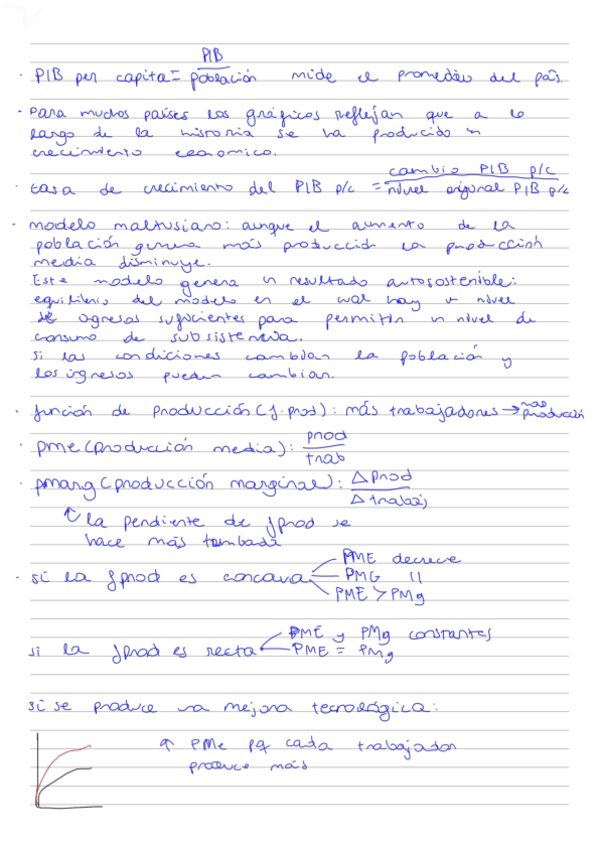 · PIB per capita = PIB / población mide el promedio del país.
· Para muchos países los gráficos reflejan que a lo
largo de la historia se ha producido un
crecimiento economico.
· tasa de crecimiento del PIB p/c = cambio PIB p/c / nivel original PIB p/c
· modelo maltusiano: aunque el aumento de la
población genera más producción la producción
media disminuye.
Este modelo genera un resultado autosostenible:
equilibrio del modelo en el cual hay un nivel
de ingresos suficientes para permitir un nivel de
consumo de subsistencia.
si las condiciones cambian la población y
los ingresos pueden cambiar.
· función de producción (f. prod): más trabajadores → más producción
· pme (producción media): prod / trab
· pmarg (producción marginal): Δ prod / Δ trabaj
↑ la pendiente de fprod se
hace más tumbada
· si la fprod es concava
PME decrece
PMG 11
PME > PMg
si la fprod es recta
PME y PMg constantes
PME = PMg
si se produce una mejora tecnológica:
↑ PMe pq cada trabajador
produce más